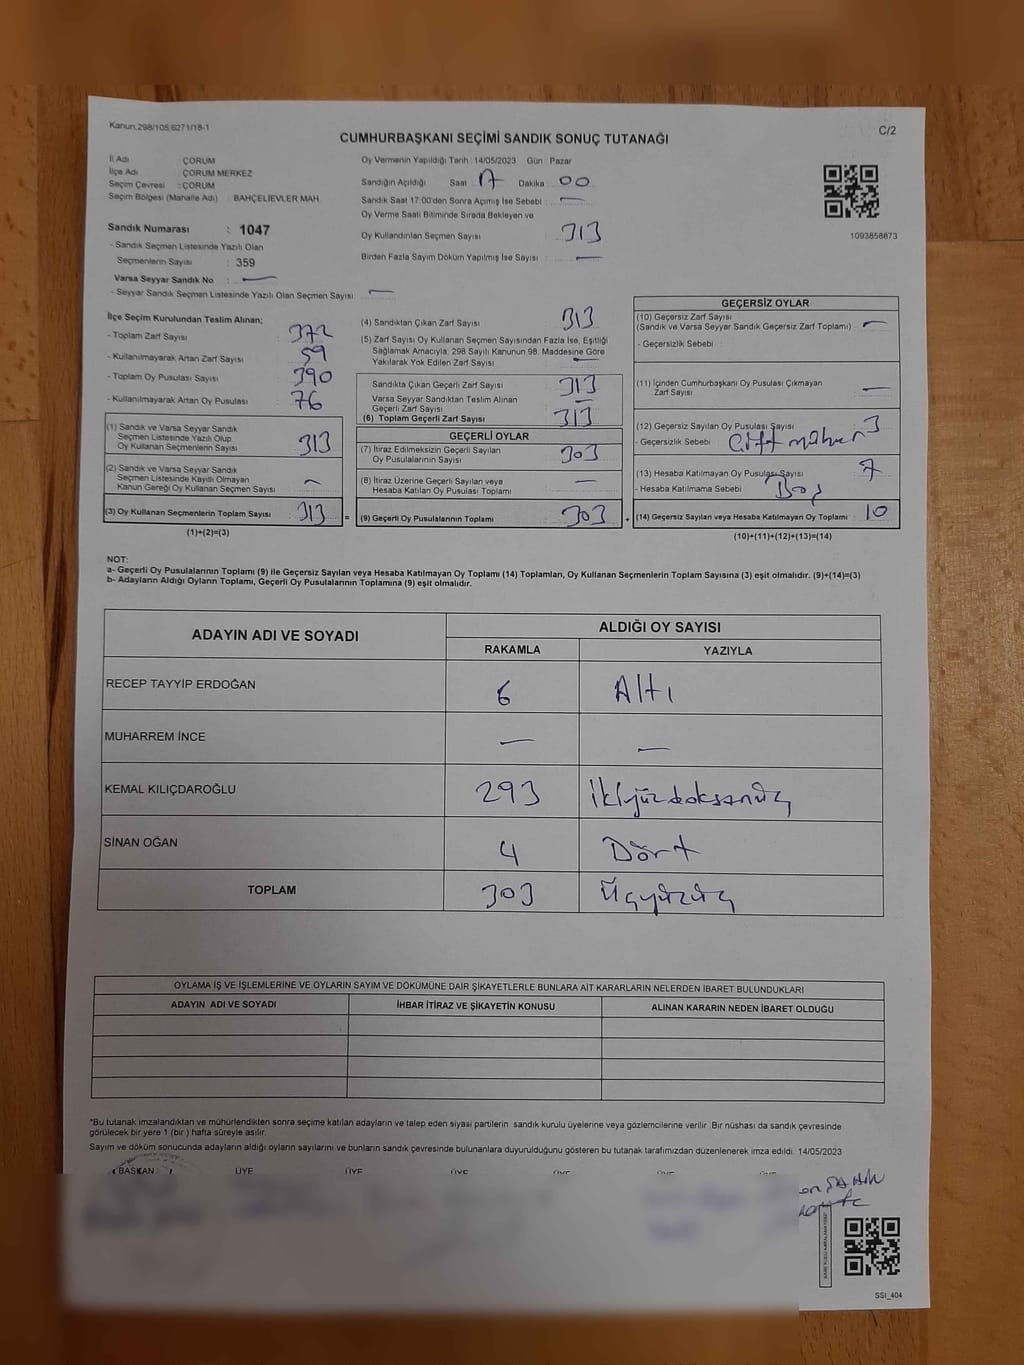 Kanun;298/105;6271/18-1
C/2
CUMHURBAŞKANI SEÇİMİ SANDIK SONUÇ TUTANAĞI
İl Adı ÇORUM
İlçe Adı ÇORUM MERKEZ
Seçim Çevresi : ÇORUM
Seçim Bölgesi (Mahalle Adı) : BAHÇELİEVLER MAH.
Sandık Numarası : 1047
- Sandık Seçmen Listesinde Yazılı Olan
Seçmenlerin Sayısı : 359
Varsa Seyyar Sandık No : —
- Seyyar Sandık Seçmen Listesinde Yazılı Olan Seçmen Sayısı : —
Oy Vermenin Yapıldığı Tarih : 14/05/2023 Gün : Pazar
Sandığın Açıldığı Saat 17 Dakika : 00
Sandık Saat 17:00'den Sonra Açılmış İse Sebebi : —
Oy Verme Saati Bitiminde Sırada Bekleyen ve
Oy Kullandırılan Seçmen Sayısı : 313
Birden Fazla Sayım Döküm Yapılmış İse Sayısı : —
1093858873
İlçe Seçim Kurulundan Teslim Alınan;
- Toplam Zarf Sayısı : 372
- Kullanılmayarak Artan Zarf Sayısı : 59
- Toplam Oy Pusulası Sayısı : 390
- Kullanılmayarak Artan Oy Pusulası : 76
(1) Sandık ve Varsa Seyyar Sandık
Seçmen Listesinde Yazılı Olup
Oy Kullanan Seçmenlerin Sayısı : 313
(2) Sandık ve Varsa Seyyar Sandık
Seçmen Listesinde Kayıtlı Olmayan
Kanun Gereği Oy Kullanan Seçmen Sayısı : —
(3) Oy Kullanan Seçmenlerin Toplam Sayısı : 313 =
(1)+(2)=(3)
(4) Sandıktan Çıkan Zarf Sayısı : 313
(5) Zarf Sayısı Oy Kullanan Seçmen Sayısından Fazla İse, Eşitliği
Sağlamak Amacıyla; 298 Sayılı Kanunun 98. Maddesine Göre
Yakılarak Yok Edilen Zarf Sayısı : —
Sandıkta Çıkan Geçerli Zarf Sayısı : 313
Varsa Seyyar Sandıktan Teslim Alınan
Geçerli Zarf Sayısı : —
(6) Toplam Geçerli Zarf Sayısı : 313
GEÇERLİ OYLAR
(7) İtiraz Edilmeksizin Geçerli Sayılan
Oy Pusulalarının Sayısı : 303
(8) İtiraz Üzerine Geçerli Sayılan veya
Hesaba Katılan Oy Pusulası Toplamı : —
(9) Geçerli Oy Pusulalarının Toplamı : 303 +
GEÇERSİZ OYLAR
(10) Geçersiz Zarf Sayısı
(Sandık ve Varsa Seyyar Sandık Geçersiz Zarf Toplamı) : —
- Geçersizlik Sebebi :
(11) İçinden Cumhurbaşkanı Oy Pusulası Çıkmayan
Zarf Sayısı : —
(12) Geçersiz Sayılan Oy Pusulası Sayısı : 3
- Geçersizlik Sebebi : Çift mühür
(13) Hesaba Katılmayan Oy Pusulası Sayısı : 7
- Hesaba Katılmama Sebebi : Boş
(14) Geçersiz Sayılan veya Hesaba Katılmayan Oy Toplamı : 10
(10)+(11)+(12)+(13)=(14)
NOT:
a- Geçerli Oy Pusulasının Toplamı (9) ile Geçersiz Sayılan veya Hesaba Katılmayan Oy Toplamı (14) Toplamları, Oy Kullanan Seçmenlerin Toplam Sayısına (3) eşit olmalıdır. (9)+(14)=(3)
b- Adayların Aldığı Oyların Toplamı, Geçerli Oy Pusulalarının Toplamına (9) eşit olmalıdır.
ADAYIN ADI VE SOYADI ALDIĞI OY SAYISI
RAKAMLA YAZIYLA
RECEP TAYYİP ERDOĞAN 6 Altı
MUHARREM İNCE — —
KEMAL KILIÇDAROĞLU 293 İkiyüzdoksanüç
SİNAN OĞAN 4 Dört
TOPLAM 303 Üçyüzüç
OYLAMA İŞ VE İŞLEMLERİNE VE OYLARIN SAYIM VE DÖKÜMÜNE DAİR ŞİKAYETLERLE BUNLARA AİT KARARLARIN NELERDEN İBARET BULUNDUKLARI
ADAYIN ADI VE SOYADI İHBAR İTİRAZ VE ŞİKAYETİN KONUSU ALINAN KARARIN NEDEN İBARET OLDUĞU
*Bu tutanak imzalandıktan ve mühürlendikten sonra seçime katılan adayların ve talep eden siyasi partilerin sandık kurulu üyelerine veya gözlemcilerine verilir. Bir nüshası da sandık çevresinde
görülecek bir yere 1 (bir) hafta süreyle asılır.
Sayım ve döküm sonucunda adayların aldığı oyların sayılarını ve bunların sandık çevresinde bulunanlara duyurulduğunu gösteren bu tutanak tarafımızdan düzenlenerek imza edildi. 14/05/2023
BAŞKAN ÜYE ÜYE ÜYE ÜYE ÜYE ÜYE
SSI_404